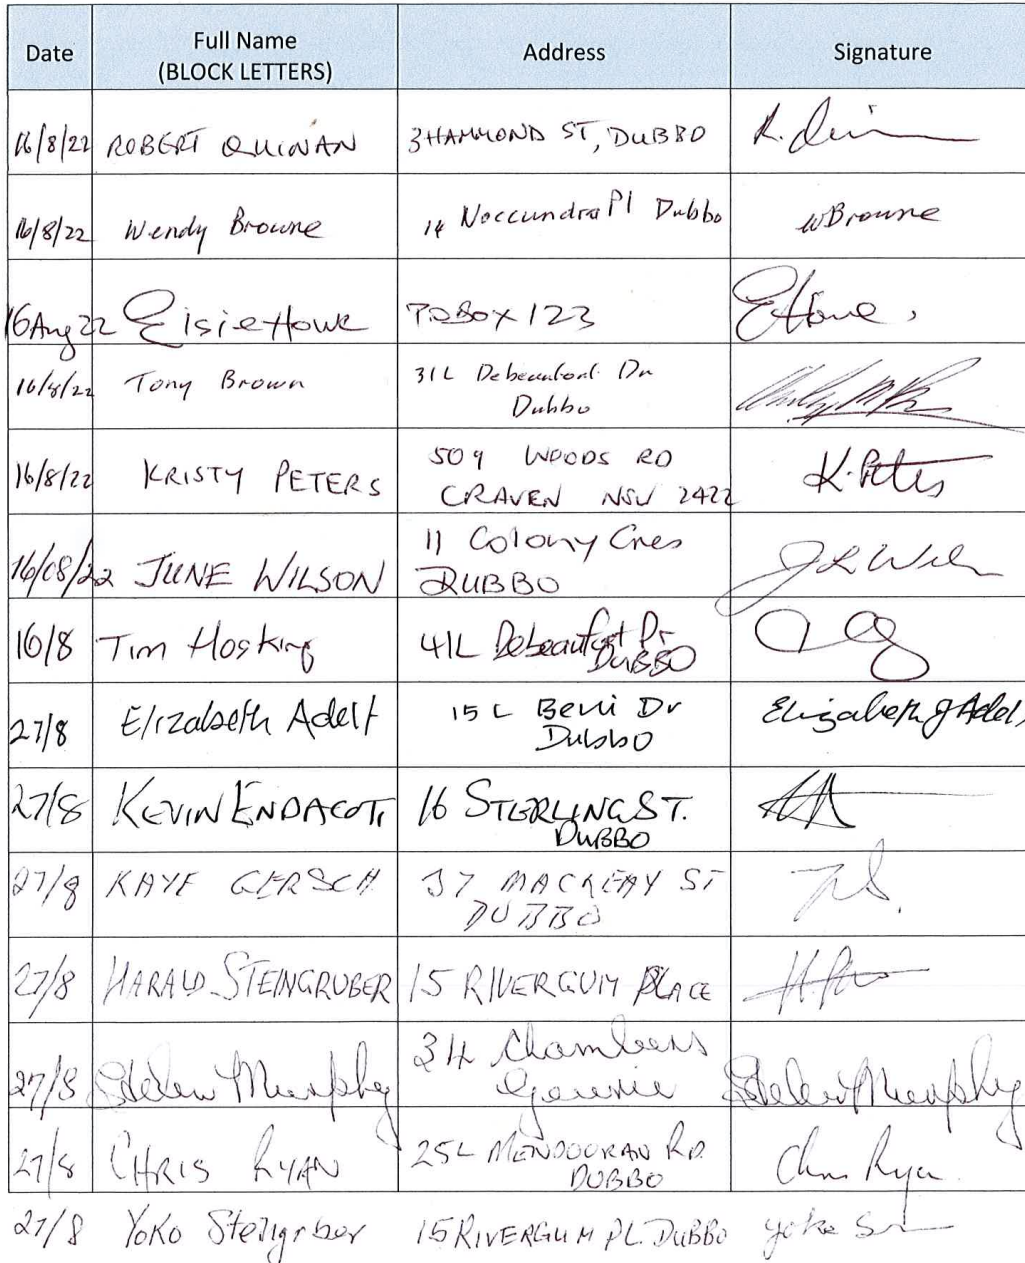 Date Full Name Address Signature
(BLOCK LETTERS)
16/8/22 ROBERT QUINAN 3 HAMMOND ST, DUBBO
16/8/22 Wendy Browne 14 Noccundra Pl Dubbo WBrowne
16 Aug 22 Elsie Howe P.O Box 123 EHowe,
16/8/22 Tony Brown 31L Debeaufort Dr
Dubbo
16/8/22 KRISTY PETERS 509 WOODS RD K. Peters
CRAVEN NSW 2422
16/08/22 JUNE WILSON 11 Colony Cres
DUBBO
16/8 Tim Hosking 41L Debeaufort Dr
DUBBO
27/8 Elizabeth Adelt 15 L Beni Dr Elizabeth J Adel
Dubbo
27/8 KEVIN ENDACOTT 16 STERLING ST.
DUBBO
27/8 KAYE GERSCH 37 MACKEAY ST
DUBBO
27/8 HARALD STEINGRUBER 15 RIVERGUM PLACE
27/8 Helen Murphy 34 Chambers Helen Murphy
27/8 CHRIS RYAN 25L MENDOORAN RD. Chris Ryan
DUBBO
27/8 Yoko Steingruber 15 RIVERGUM PL. DUBBO